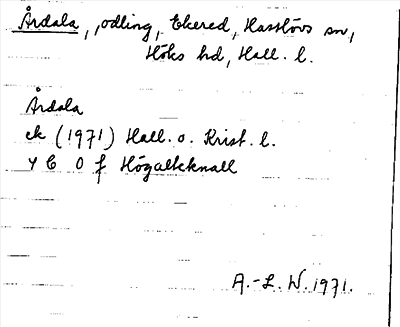 Årdala, odling, Ekered, Hasslövs sn,
Höks hd, Hall. l.
Årdala
ek (1971) Hall. o. Krist. l.
4 C 0 f Högalteknall
A.-L. W. 1971.